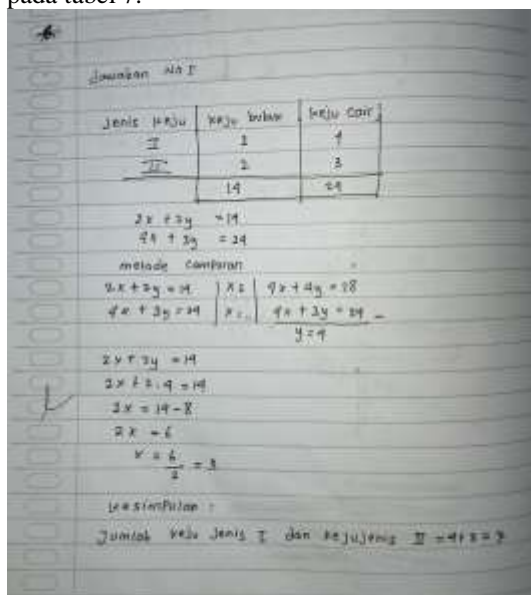 pada tabel 7.
Jawaban No I
Jenis keju | keju bubuk | keju Cair
I | 2 | 4
II | 2 | 3
14 | 24
2x + 2y = 14
4x + 3y = 24
metode Campuran
2x + 2y = 14 | x2 | 4x + 4y = 28
4x + 3y = 24 | x1 | 4x + 3y = 24 -
y = 4
2x + 2y = 14
2x + 2.4 = 14
2x = 14 - 8
2x = 6
x = 6/2 = 3
kesimpulan :
Jumlah keju Jenis I dan keju jenis II = 4 + 3 = 7